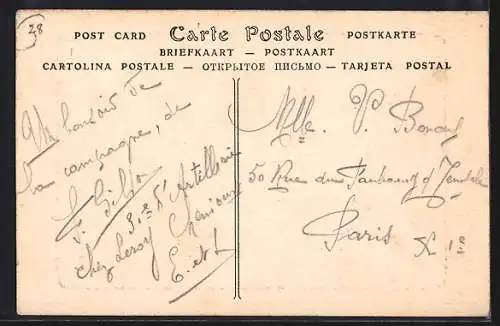 28
POST CARD Carte Postale POSTKARTE
BRIEFKAART — POSTKAART
CARTOLINA POSTALE — ОТКРЫТОЕ ПИСЬМО — TARJETA POSTAL
Un bonsoir de
la campagne, de
3e d'Artellerie
chez Leroy
E. et L
Melle. P.
50 Rue du Faubourg d
Paris